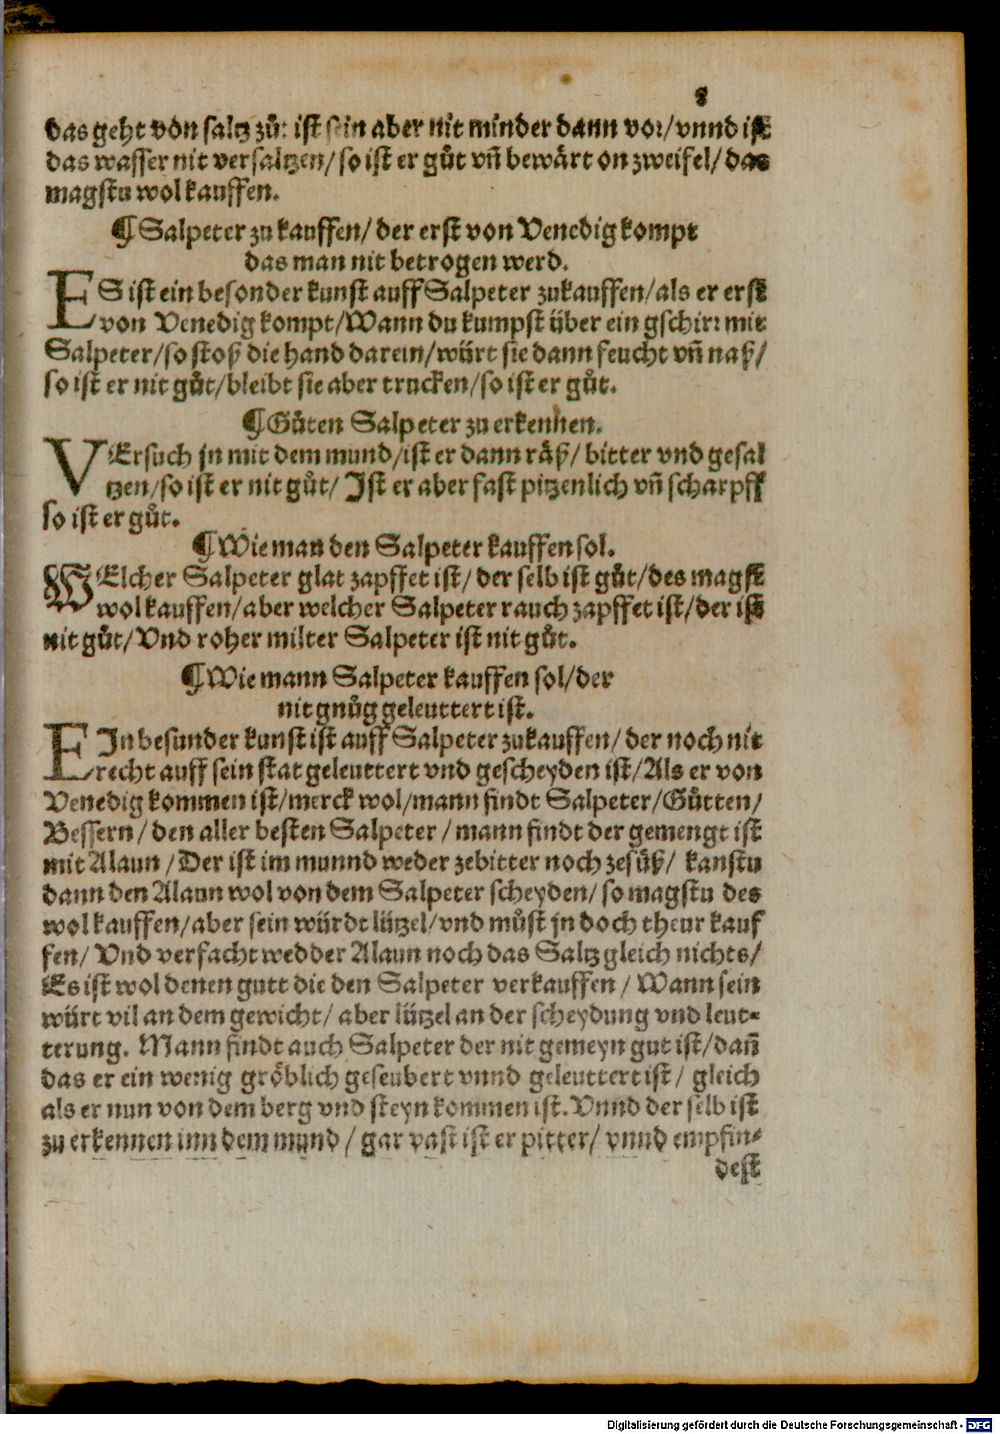 8
das geht von saltz zů: ist sein aber nit minder dann vor/ vnnd ist
das wasser nit versaltzen/ so ist er gůt vñ bewärt on zweifel/ das
magstu wol kauffen.
¶ Salpeter zu kauffen/ der erst von Venedig kompt
das man nit betrogen werd.
ES ist ein besonder kunst auff Salpeter zukauffen/ als er erst
von Venedig kompt/ Wann du kumpst über ein gschirr mit
Salpeter/ so stoß die hand darein/ würt sie dann feucht vñ naß/
so ist er nit gůt/ bleibt sie aber trucken/ so ist er gůt.
¶ Gůten Salpeter zu erkennen.
VErsuch jn mit dem mund/ ist er dann räß/ bitter vnd gesal
tzen/ so ist er nit gůt/ Ist er aber fast pitzenlich vñ scharpff
so ist er gůt.
¶ Wie man den Salpeter kauffen sol.
WElcher Salpeter glat zapffet ist/ der selb ist gůt/ des magst
wol kauffen/ aber welcher Salpeter rauch zapffet ist/ der ist
nit gůt/ Vnd roher milter Salpeter ist nit gůt.
¶ Wie mann Salpeter kauffen sol/ der
nit gnůg geleuttert ist.
EIn besunder kunst ist auff Salpeter zukauffen/ der noch nit
recht auff sein stat geleuttert vnd gescheyden ist/ Als er von
Venedig kommen ist/ merck wol/ mann findt Salpeter/ Gůtten/
Bessern/ den aller besten Salpeter/ mann findt der gemengt ist
mit Alaun/ Der ist im munnd weder zebitter noch zesüß/ kanstu
dann den Alaun wol von dem Salpeter scheyden/ so magstu des
wol kauffen/ aber sein würdt lützel/ vnd můst jn doch theur kauf
fen/ Vnd verfacht wedder Alaun noch das Saltz gleich nichts/
Es ist wol denen gutt die den Salpeter verkauffen/ Wann sein
würt vil an dem gewicht/ aber lützel an der scheydung vnd leut-
terung. Mann findt auch Salpeter der nit gemeyn gut ist/ dañ
das er ein wenig gröblich geseubert vnnd geleuttert ist/ gleich
als er nun von dem berg vnd steyn kommen ist. Vnnd der selb ist
zu erkennen inn dem mund/ gar vast ist er pitter/ vnnd empfin-
dest
Digitalisierung gefördert durch die Deutsche Forschungsgemeinschaft - DFG